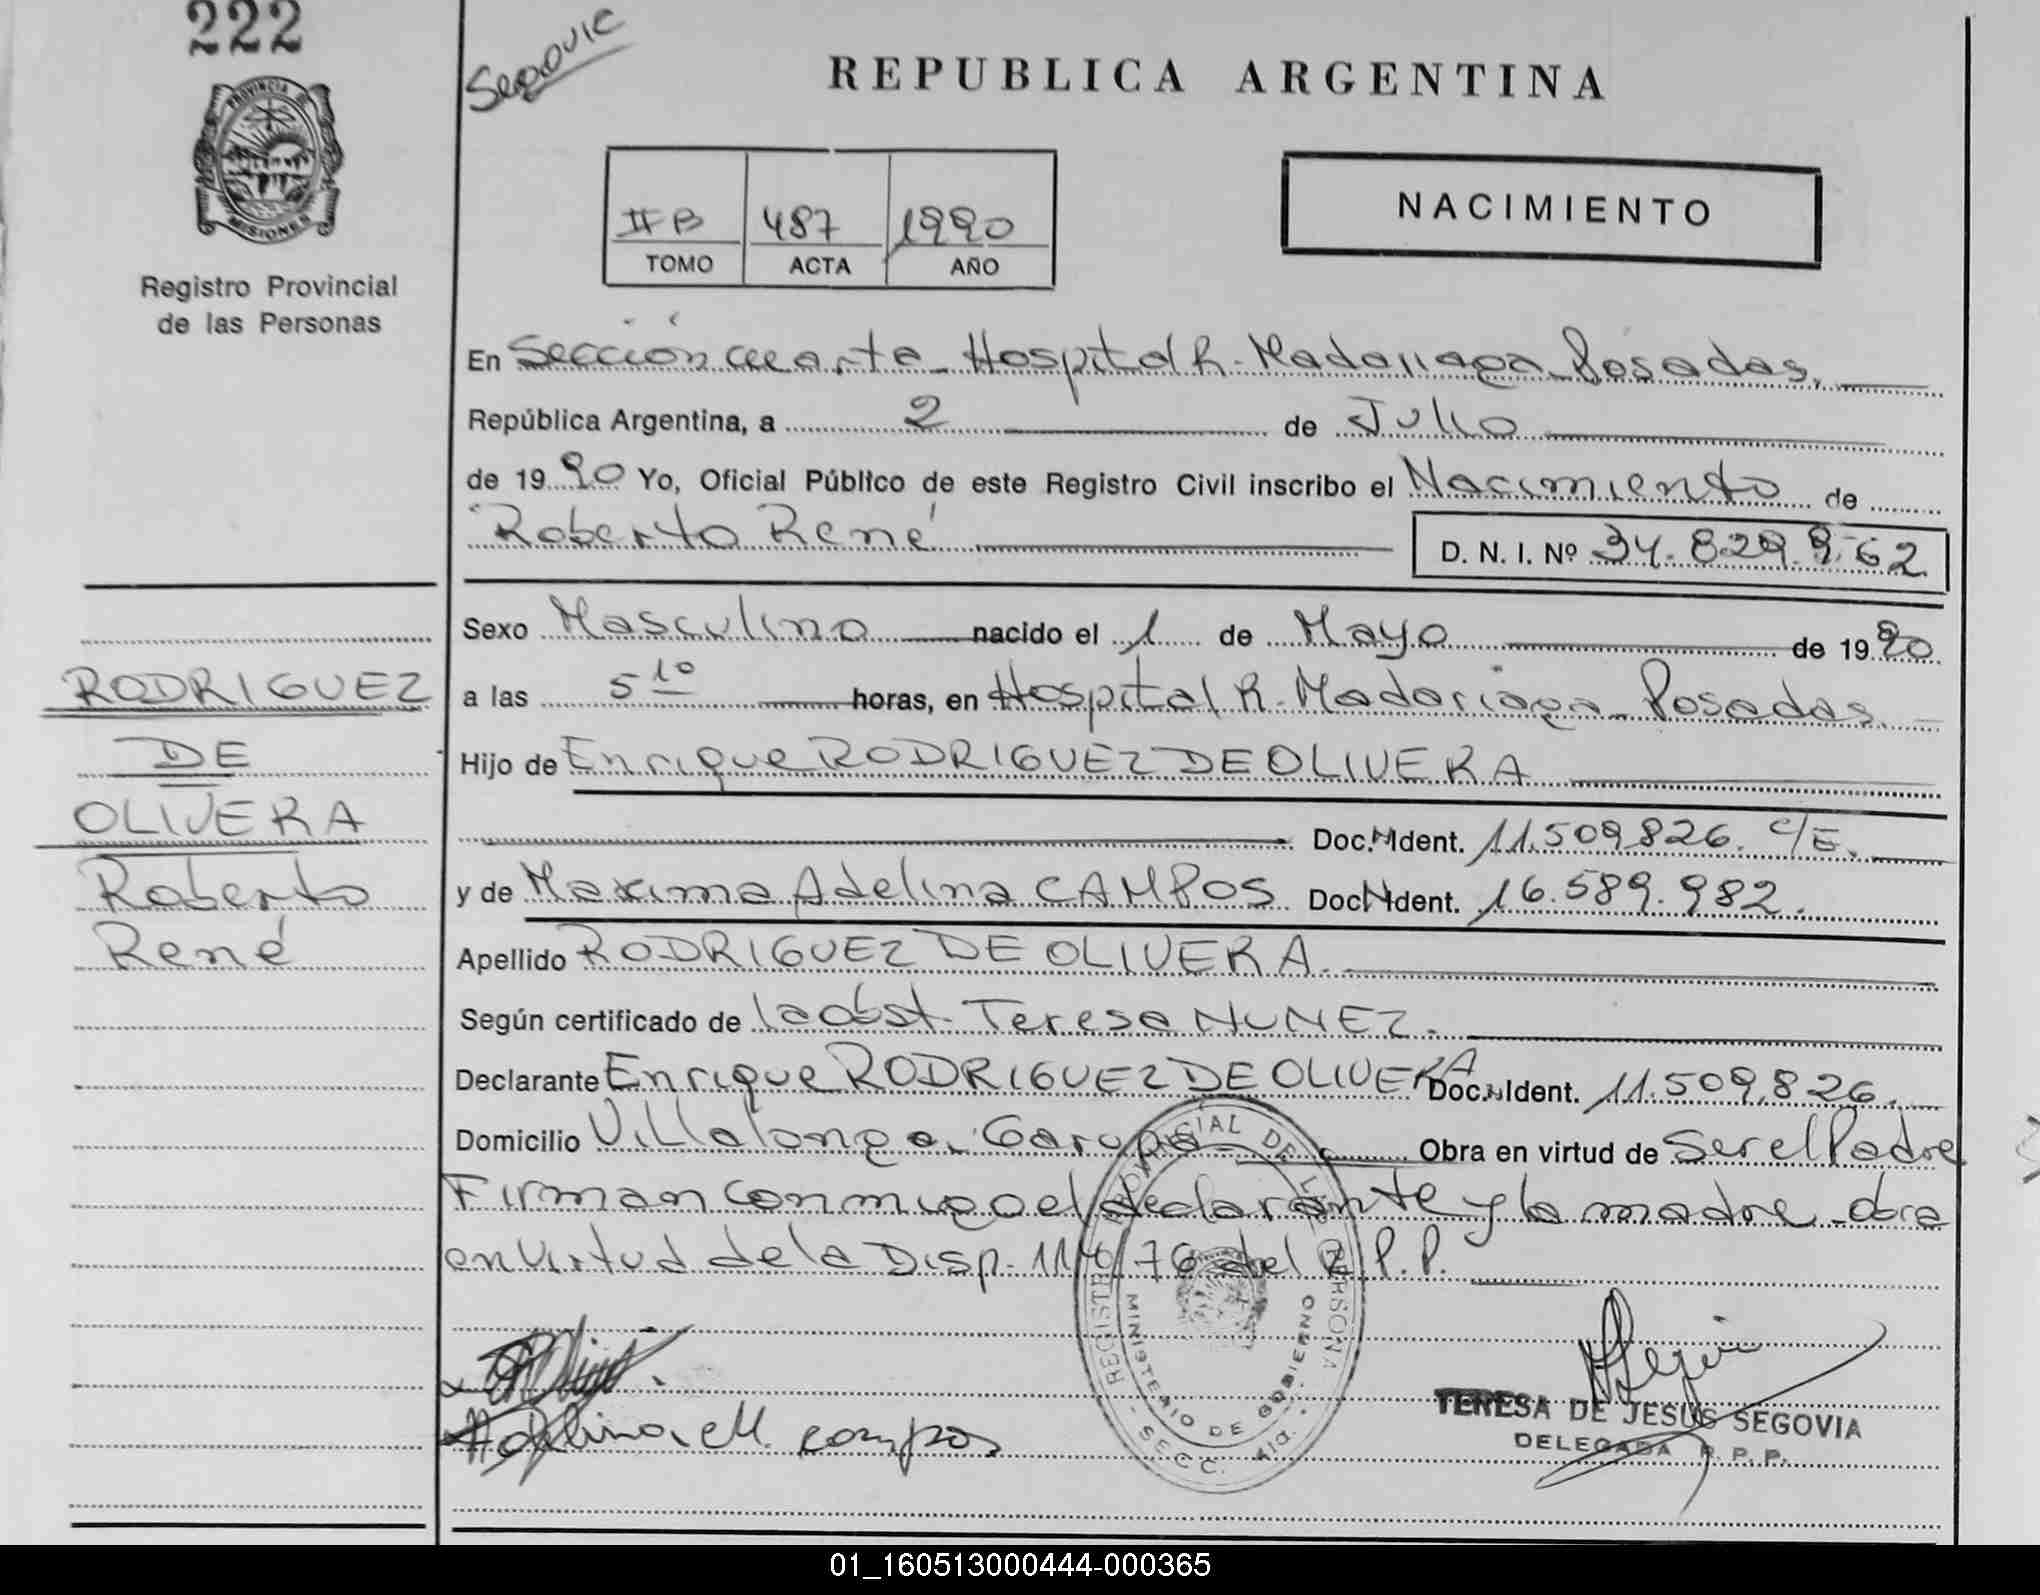 222
PROVINCIA DE
MISIONES
Registro Provincial
de las Personas
RODRIGUEZ
DE
OLIVERA
Roberto
René
REPUBLICA ARGENTINA
II B 487 1990
TOMO ACTA AÑO
NACIMIENTO
En Sección cuarta - Hospital R. Madariaga - Posadas.
República Argentina, a 2 de Julio
de 1990 Yo, Oficial Público de este Registro Civil inscribo el Nacimiento de
Roberto René D. N. I. Nº 34.829.962
Sexo Masculino nacido el 1 de Mayo de 1990
a las 5 10 horas, en Hospital R. Madariaga - Posadas.
Hijo de Enrique RODRIGUEZ DE OLIVERA
Doc. N Ident. 11.509.826. C/E.
y de Maxima Adelina CAMPOS Doc N Ident. 16.589.982.
Apellido RODRIGUEZ DE OLIVERA
Según certificado de la obst. Teresa NUNEZ.
Declarante Enrique RODRIGUEZ DE OLIVERA Doc. N Ident. 11.509.826.
Domicilio Villalonga. Garupa Obra en virtud de Ser el Padre
Firman conmigo el declarante y la madre - obra
en Virtud de la Disp. 76 del R.P.P.
Adelina M. campos
REGISTRO PROVINCIAL DE LAS PERSONAS
MINISTERIO DE GOBIERNO
SECC. 4ta.
TERESA DE JESUS SEGOVIA
DELEGADA R. P. P.
01_160513000444-000365